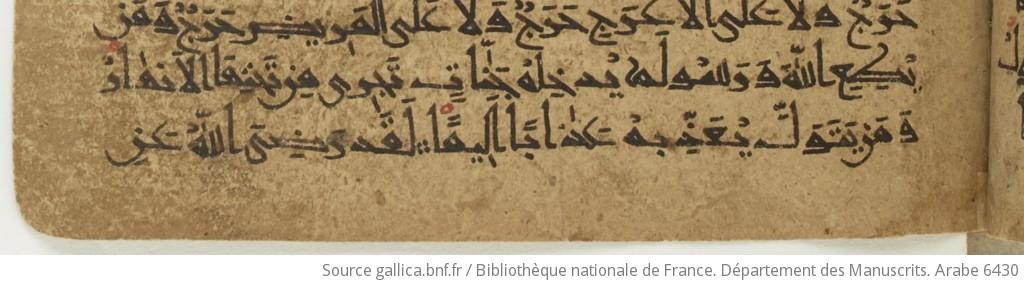 حَرَجٌ وَلَا عَلَى الْأَعْرَجِ حَرَجٌ وَلَا عَلَى الْمَرِيضِ حَرَجٌ وَمَنْ
يُطِعِ اللَّهَ وَرَسُولَهُ يُدْخِلْهُ جَنَّاتٍ تَجْرِي مِنْ تَحْتِهَا الْأَنْهَارُ
وَمَنْ يَتَوَلَّ يُعَذِّبْهُ عَذَابًا أَلِيمًا لَقَدْ رَضِيَ اللَّهُ عَنِ
Source gallica.bnf.fr / Bibliothèque nationale de France. Département des Manuscrits. Arabe 6430